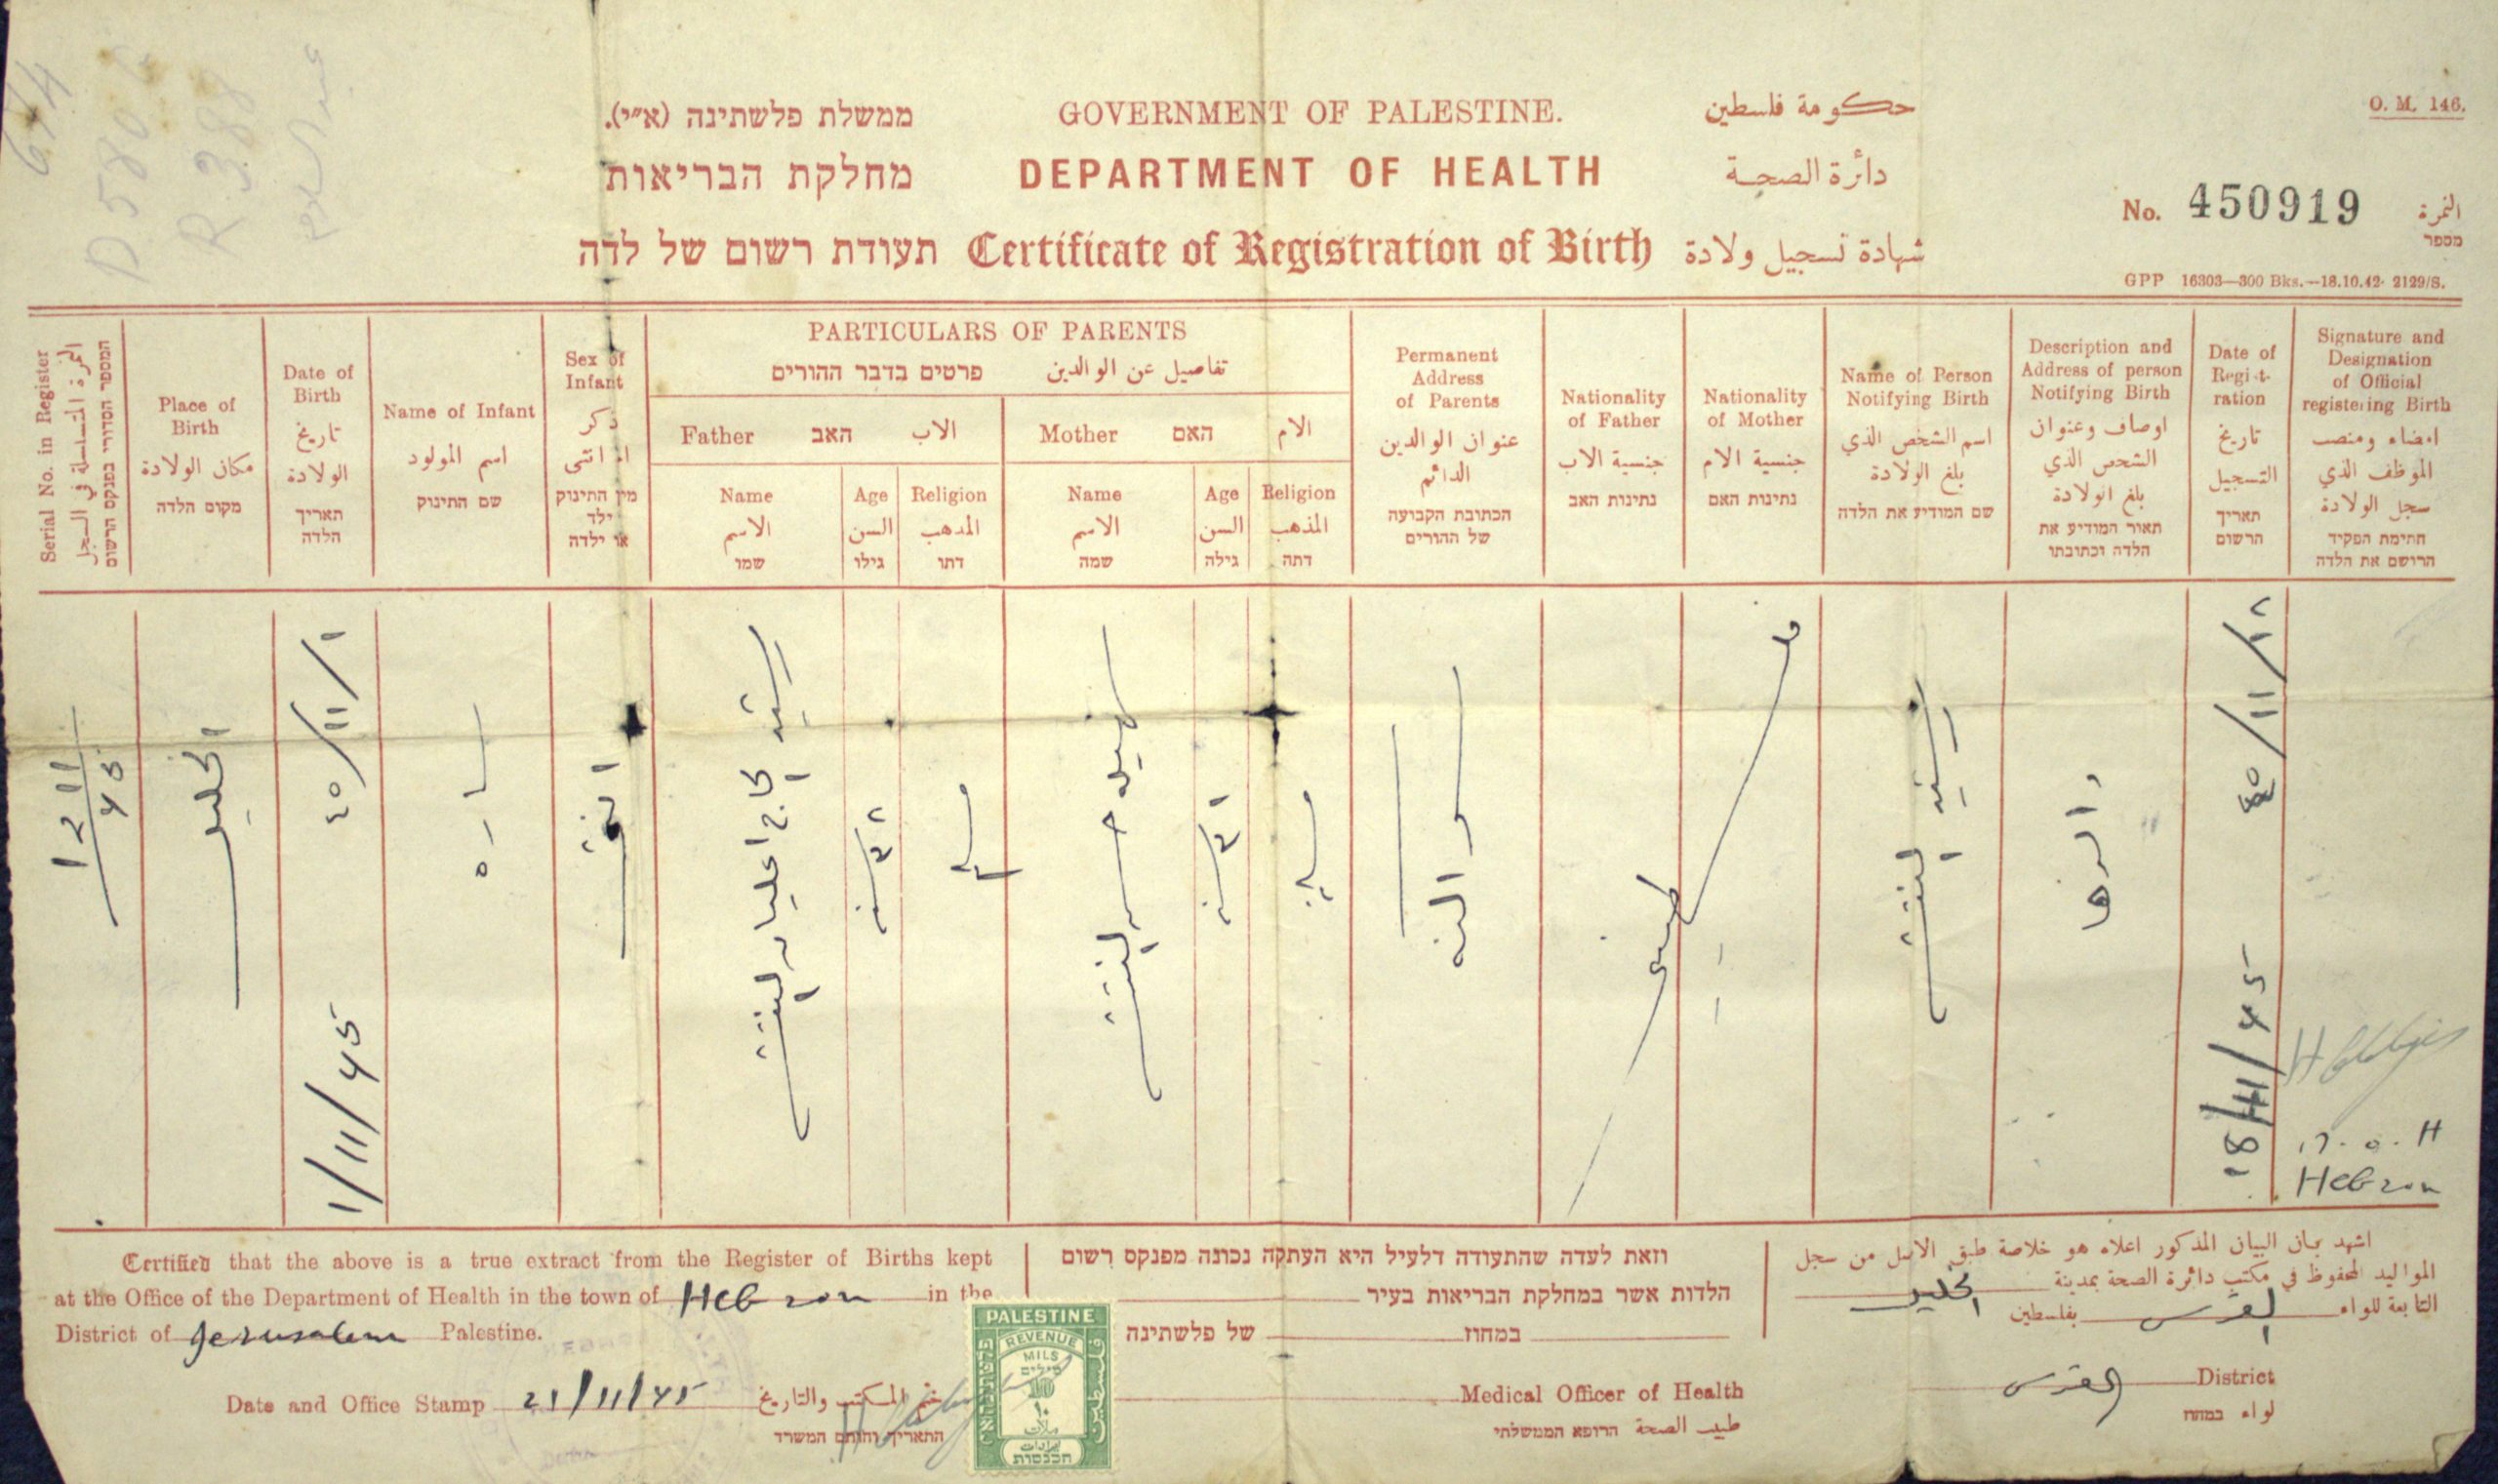 O. M. 146.
ממשלת פלשתינה (א״י). GOVERNMENT OF PALESTINE. حكومة فلسطين
מחלקת הבריאות DEPARTMENT OF HEALTH دائرة الصحة
No. 450919 النمرة
מספר
תעודת רשום של לדה Certificate of Registration of Birth شهادة تسجيل ولادة
GPP 16303—300 Bks.—18.10.42- 2129/S.
614
D 580
R 388
Serial No. in Register
النمرة المتسلسلة في السجل
המספר הסדורי בפנקס הרשום
Place of
Birth
مكان الولادة
מקום הלדה
Date of
Birth
تاريخ
الولادة
תאריך
הלדה
Name of Infant
اسم المولود
שם התינוק
Sex of
Infant
ذكر
او انثى
מין התינוק
ילד
או ילדה
PARTICULARS OF PARENTS
פרטים בדבר ההורים تفاصيل عن الوالدين
Father האב الاب
Mother האם الام
Name
الاسم
שמו
Age
السن
גילו
Religion
المذهب
דתו
Name
الاسم
שמה
Age
السن
גילה
Religion
المذهب
דתה
Permanent
Address
of Parents
عنوان الوالدين
الدائم
הכתובת הקבועה
של ההורים
Nationality
of Father
جنسية الاب
נתינות האב
Nationality
of Mother
جنسية الام
נתינות האם
Name of Person
Notifying Birth
اسم الشخص الذي
بلغ الولادة
שם המודיע את הלדה
Description and
Address of person
Notifying Birth
اوصاف وعنوان
الشخص الذي
بلغ الولادة
תאור המודיע את
הלדה וכתובתו
Date of
Regist-
ration
تاريخ
التسجيل
תאריך
הרשום
Signature and
Designation
of Official
registering Birth
امضاء ومنصب
الموظف الذي
سجل الولادة
חתימת הפקיד
הרושם את הלדה
الخليل
١/١١/٤٥
1/11/45
ساره
انثى
رشيد الحاج عليان النتشه
٣٢ سنه
مسلم
سهيله حسن النتشه
٣١ سنه
مسلمه
فلسطيني
رشيد النتشه
والدها
١٨/١١/٤٥
18/11/45
Hebron
Certified that the above is a true extract from the Register of Births kept
at the Office of the Department of Health in the town of Hebron in the
District of Jerusalem Palestine.
Date and Office Stamp 21/11/45 ختم المكتب والتاريخ
התאריך וחותם המשרד
וזאת לעדה שהתעודה דלעיל היא העתקה נכונה מפנקס רשום
הלדות אשר במחלקת הבריאות בעיר
במחוז של פלשתינה
Medical Officer of Health
طبيب الصحة הרופא הממשלתי
اشهد بان البيان المذكور اعلاه هو خلاصة طبق الاصل من سجل
المواليد المحفوظ في مكتب دائرة الصحة بمدينة الخليل
التابعة للواء القدس بفلسطين
القدس District
لواء במחוז
PALESTINE
REVENUE
MILS
מילים
10
١٠
ملات
فلسطين
פלשתינה א״י
ايرادات
הכנסות